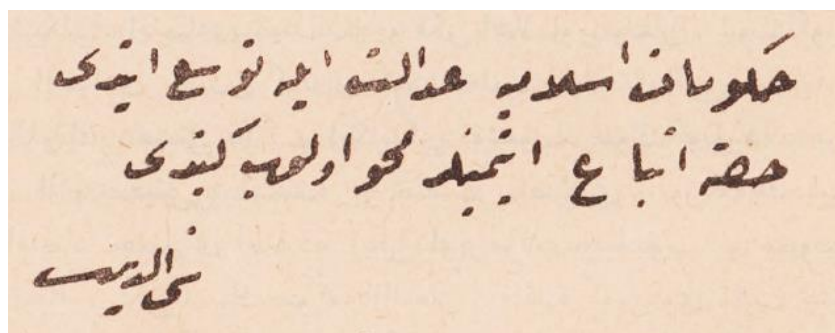 حكومات اسلاميه عدالت ايله توسع ايتدى
حقه اتباع ايتمينلر محو اولوب كيتدى
الدين